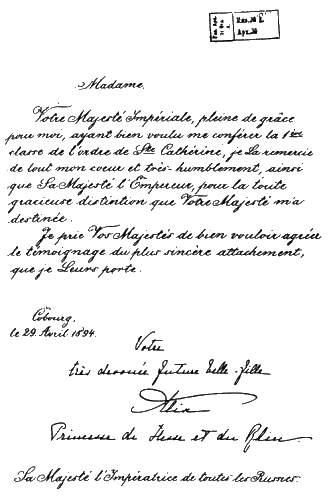 Madame.
Votre Majesté Impériale, pleine de grâce
pour moi, ayant bien voulu me conférer la 1ère
classe de l'ordre de Ste Cathérine, je La remercie
de tout mon coeur et très-humblement, ainsi
que Sa Majesté l'Empereur, pour la toute
gracieuse distintion que Votre Majesté m'a
destinée.
Je prie Vos Majestés de bien vouloir agréer
le témoignage du plus sincère attachement,
que je Leurs porte.
Cobourg,
le 29. Avril 1894.
Votre
très devouée future belle-fille
Alix
Princesse de Hesse et du Rhin.
Sa Majesté l'Impératrice de toutes les Russies.